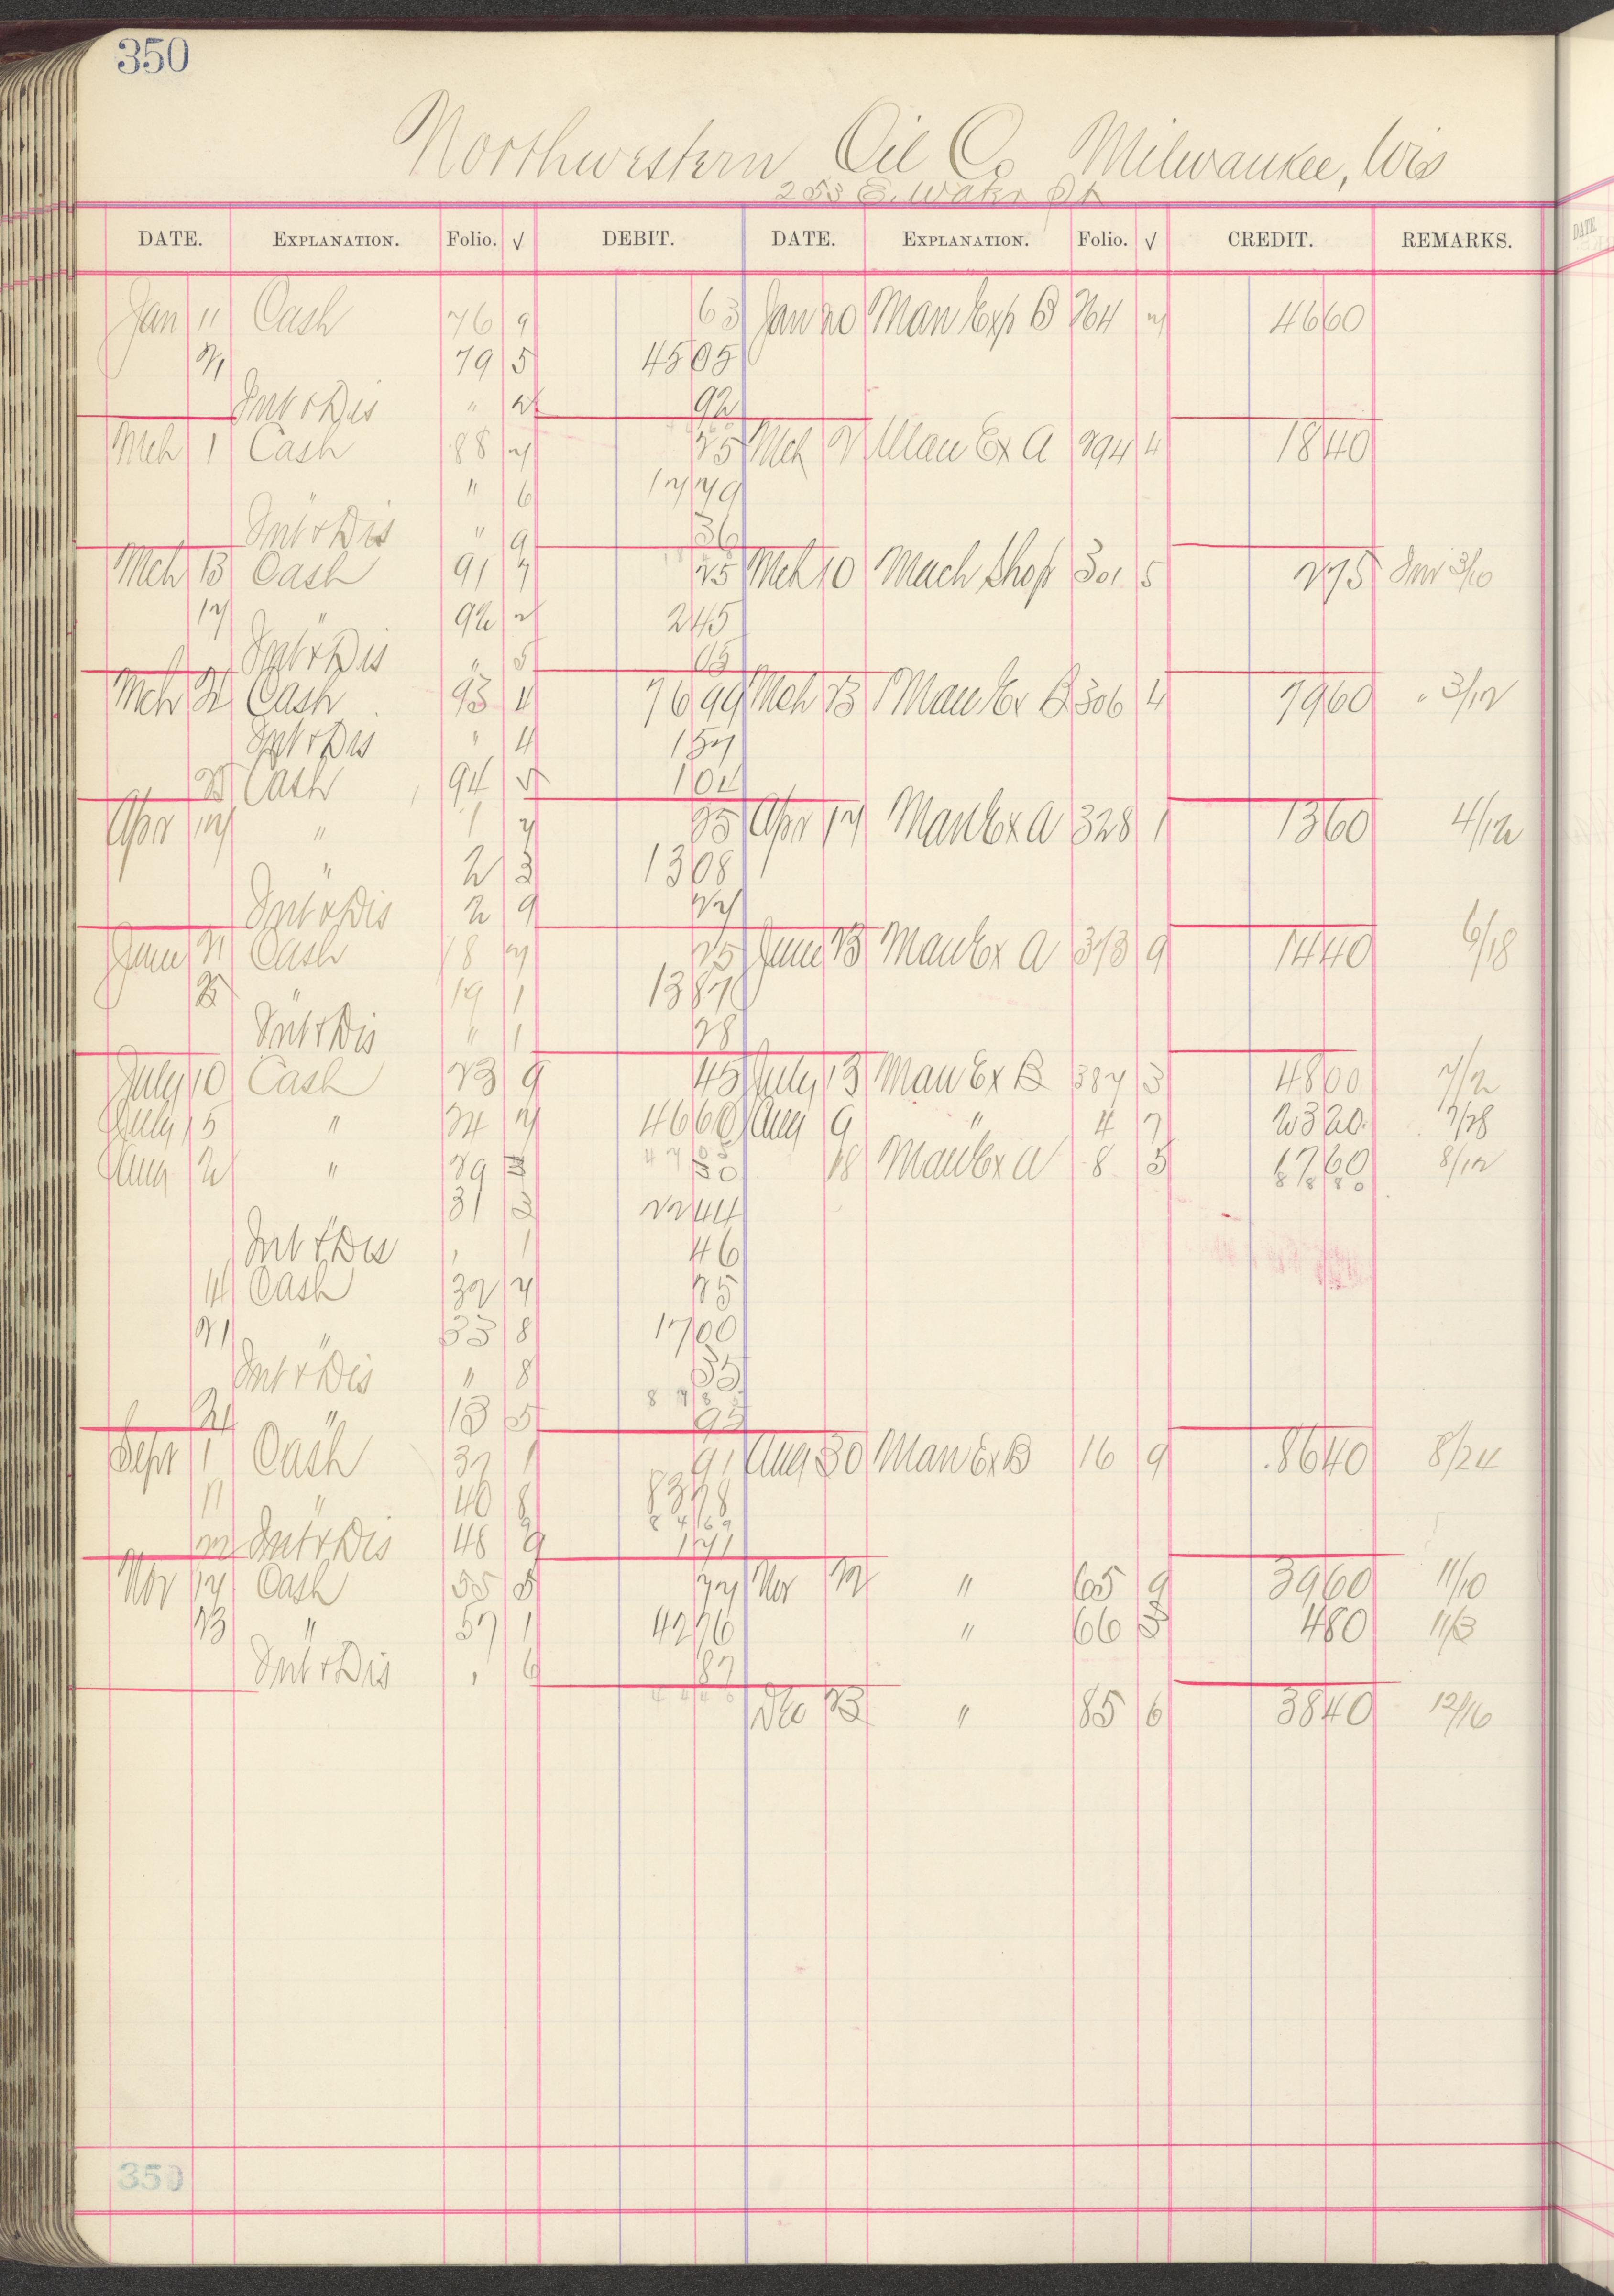 350
Northwestern Oil Co Milwaukee, Wis
253 E. Water St
DATE. EXPLANATION. Folio. √ DEBIT. DATE. EXPLANATION. Folio. √ CREDIT. REMARKS.
Jan 11 Cash 76 9 63 Jan 20 Man Exp B 264 2 4660
21 79 5 4505
Int & Dis " 2 92
Mch 1 Cash 88 7 25 Mch 2 Man Ex A 294 4 1840
" " 6 1779
Int & Dis " 9 36
Mch 13 Cash 91 7 25 Mch 10 Mach Shop 301 5 275 Inv 3/10
17 " 92 2 245
Int & Dis " 5 05
Mch 21 Cash 93 4 7699 Mch 23 Man Ex B 306 4 7960 " 3/12
Int & Dis " 4 157
25 Cash 94 5 104
Apr 14 " 1 7 25 Apr 17 Man Ex A 328 1 1360 4/12
" 2 3 1308
Int & Dis 2 9 27
June 21 Cash 18 7 25 June 23 Man Ex A 373 9 1440 6/18
25 " 19 1 1387
Int & Dis " 1 28
July 10 Cash 23 9 45 July 13 Man Ex B 387 3 4800 7/2
July 15 " 24 7 4660 Aug 9 " 4 7 2320 7/28
4705
Aug 2 " 29 3 50 18 Man Ex A 8 5 1760 8/12
8880
31 2 2244
Int & Dis " 1 46
14 Cash 32 7 25
21 " 33 8 1700
Int & Dis " 8 35
24 " 13 5 95
Sept 1 Cash 37 1 91 Aug 30 Man Ex B 16 9 8640 8/24
11 " 40 8 8378
8469
22 Int & Dis 48 9 171
Nov 17 Cash 55 5 77 Nov 22 " 65 9 3960 11/10
23 " 57 1 4276 " 66 3 480 11/13
Int & Dis " 6 87
4440
Dec 23 " 85 6 3840 12/16
350